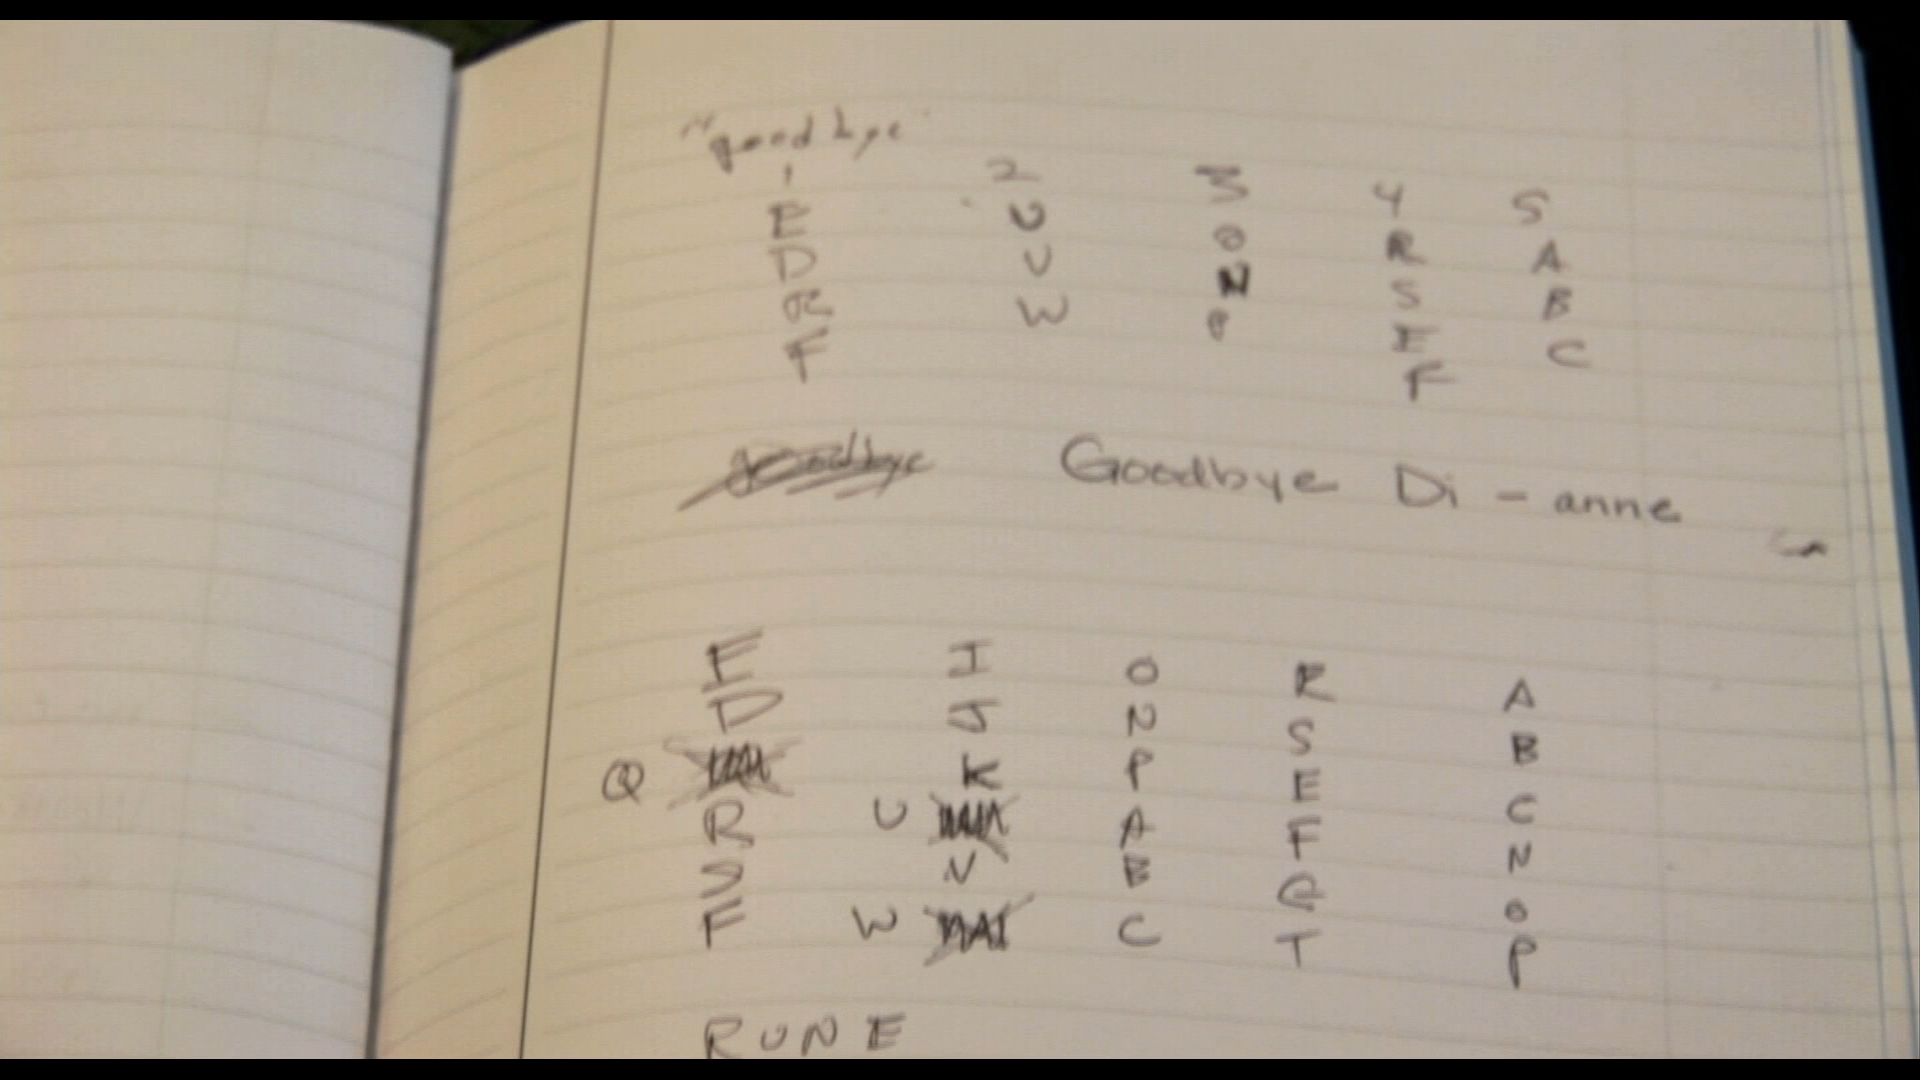 "goodbye"
1 2 3 4 5
E U O R A
D V N S B
R W P E C
F F
Goodbye Di - anne
E I O R A
D J N S B
Q K P E C
R U A F N
S V B G O
F W C T P
RUNE